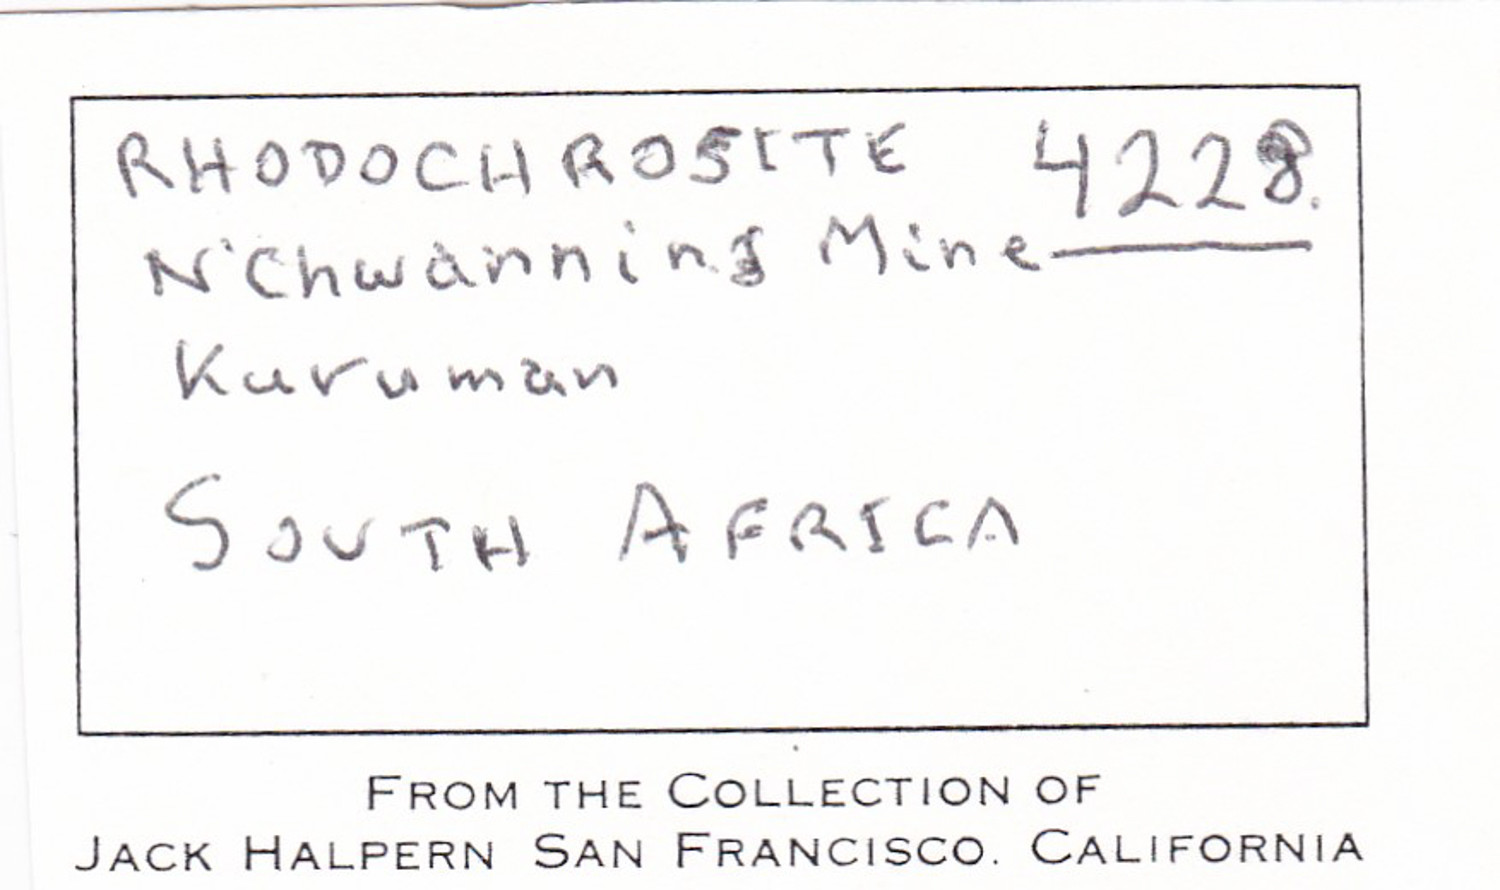 RHODOCHROSITE 4228.
N'Chwanning Mine
Kuruman
SOUTH AFRICA
FROM THE COLLECTION OF
JACK HALPERN SAN FRANCISCO. CALIFORNIA